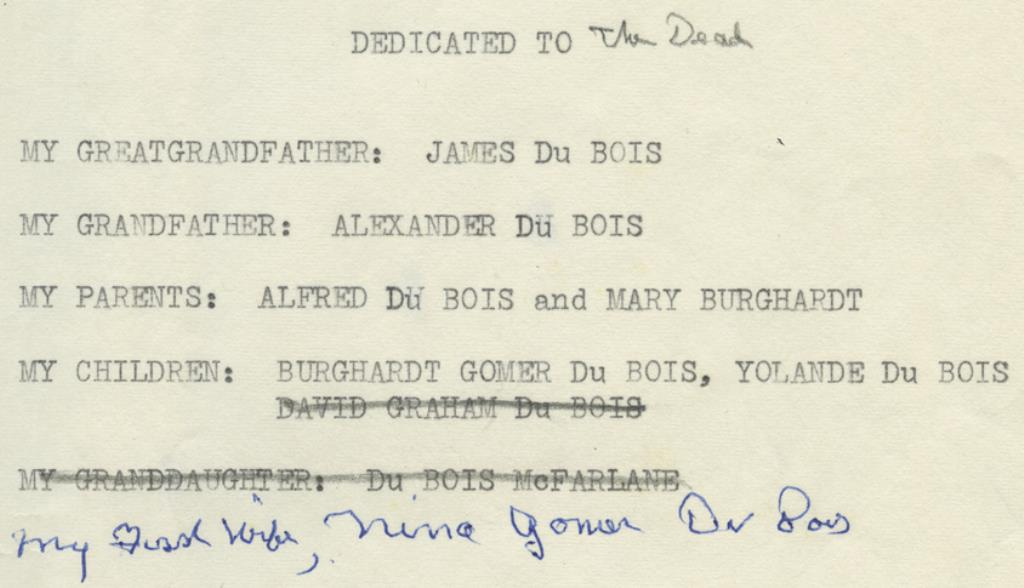 DEDICATED TO The Dead
MY GREATGRANDFATHER: JAMES Du BOIS
MY GRANDFATHER: ALEXANDER Du BOIS
MY PARENTS: ALFRED Du BOIS and MARY BURGHARDT
MY CHILDREN: BURGHARDT GOMER Du BOIS, YOLANDE Du BOIS
DAVID GRAHAM Du BOIS
MY GRANDDAUGHTER: Du BOIS McFARLANE
My First Wife, Nina Gomer Du Bois